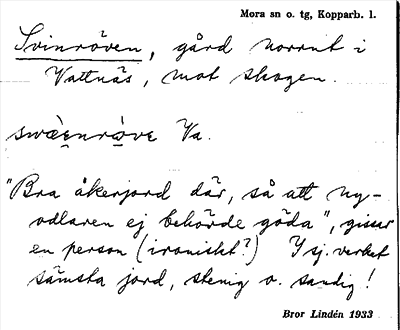 Mora sn o. tg, Kopparb. l.
Svinröven, gård norrut i
Vattnäs, mot skogen.
Va.
"Bra åkerjord där, så att ny-
odlaren ej behövde göda", gissar
en person (ironiskt?) I sj. verket
sämsta jord, stenig o. sandig!
Bror Lindén 1933